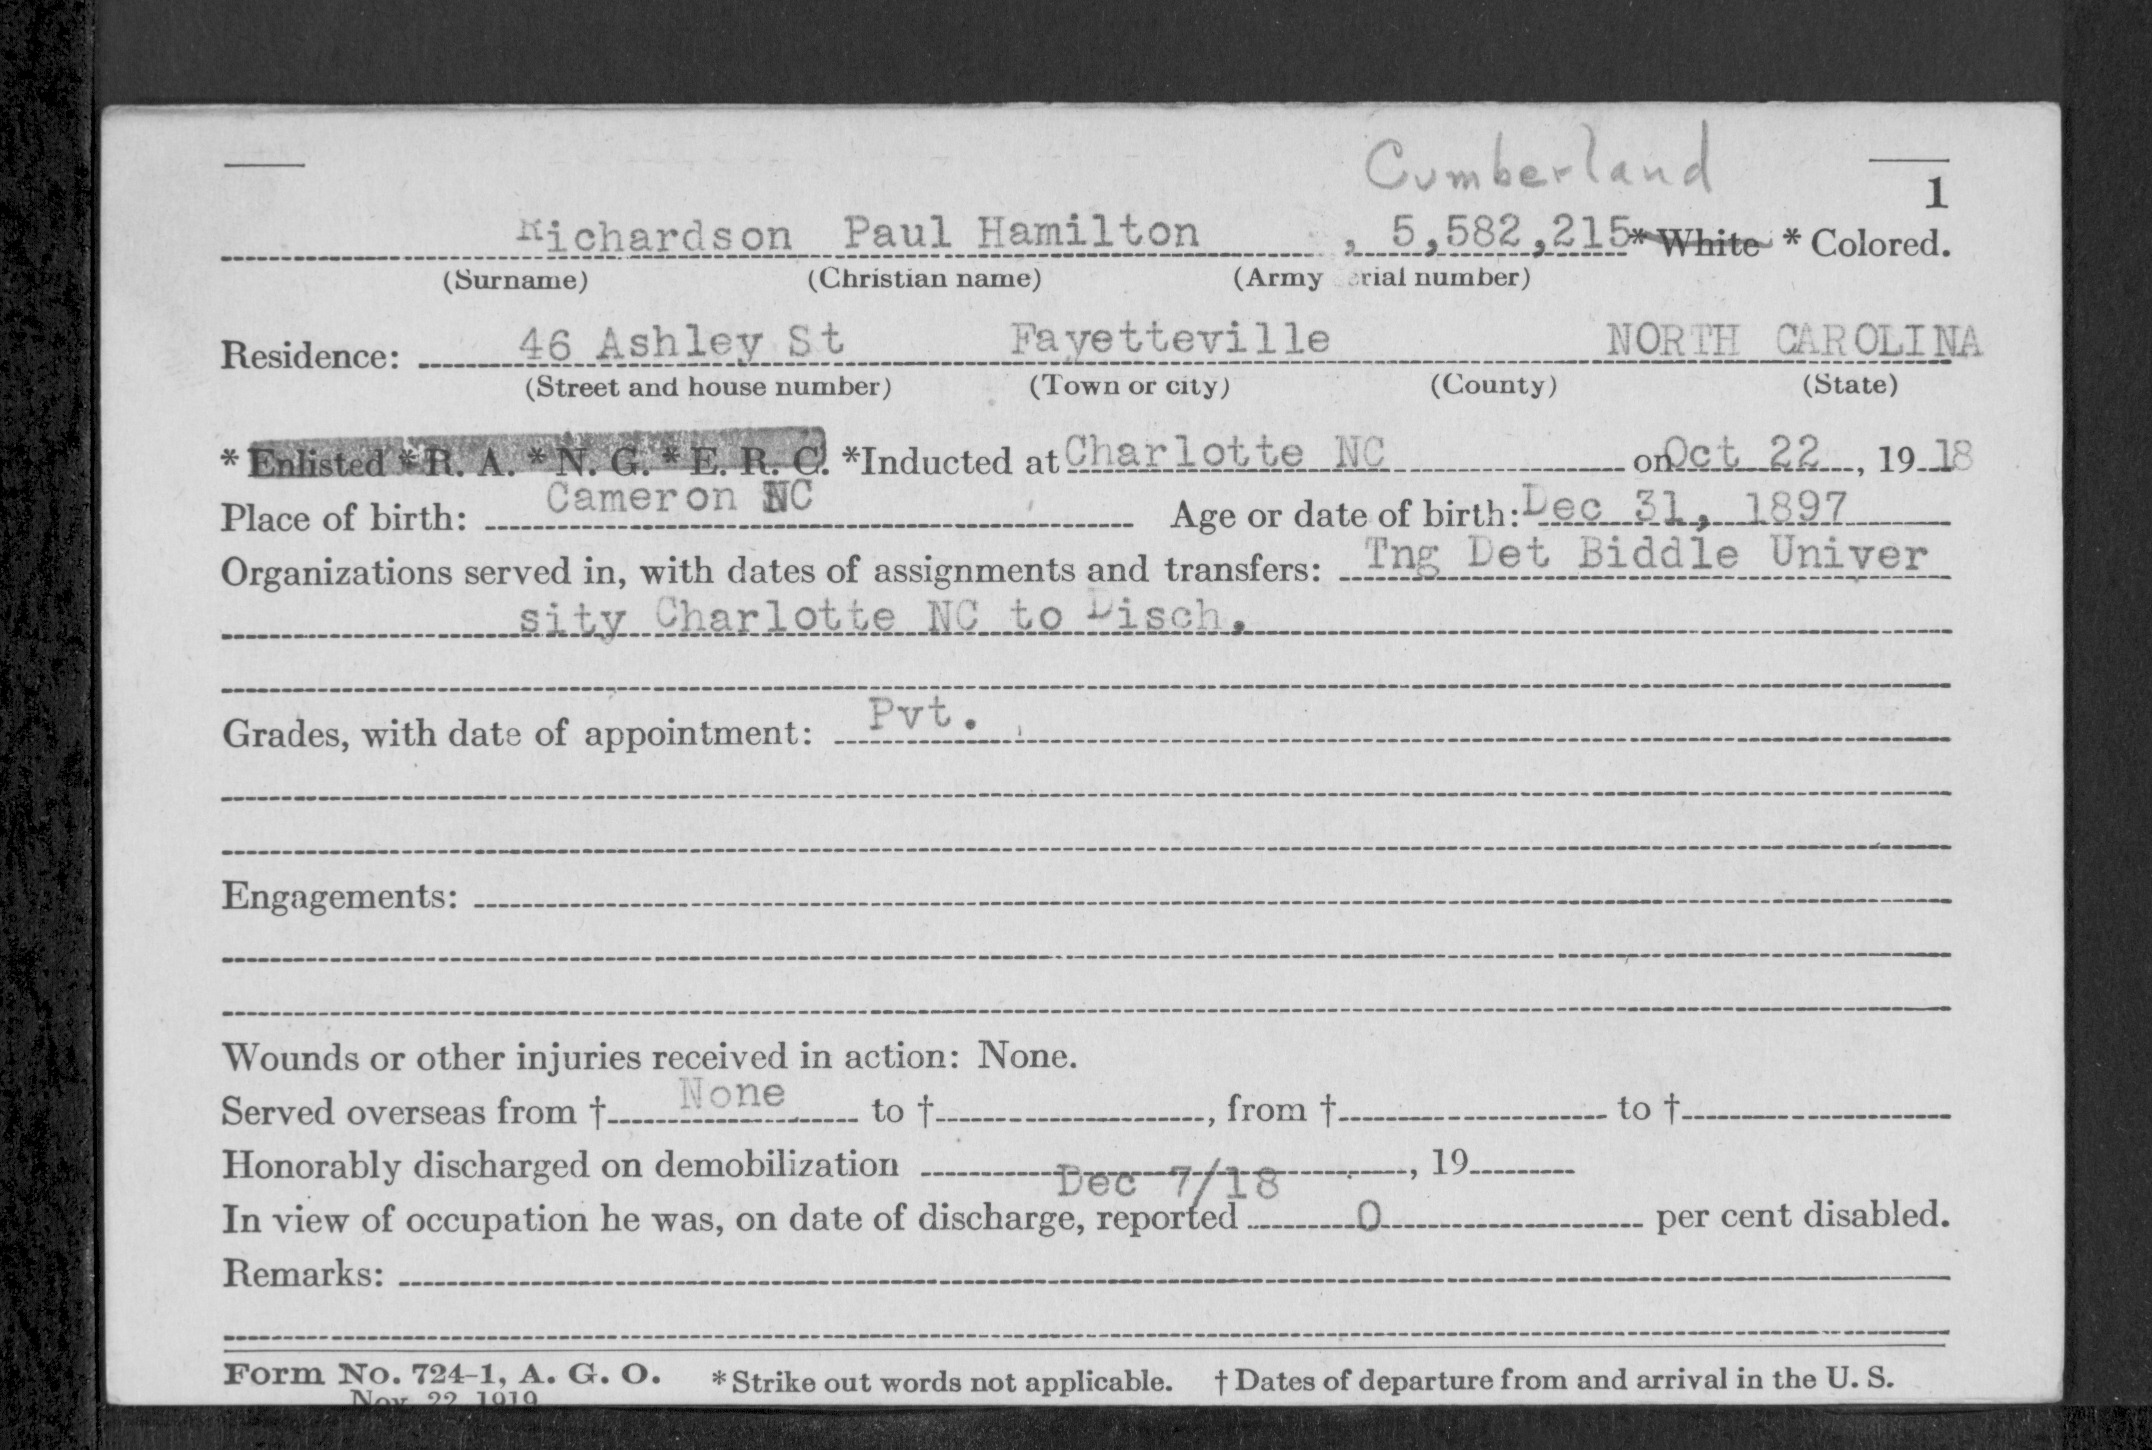 Cumberland
1
Richardson Paul Hamilton , 5,582,215 * White * Colored.
(Surname) (Christian name) (Army rial number)
Residence: 46 Ashley St Fayetteville NORTH CAROLINA
(Street and house number) (Town or city) (County) (State)
* Enlisted * R. A. * N. G. * E. R. C. *Inducted at Charlotte NC on Oct 22, 19 18
Place of birth: Cameron NC Age or date of birth: Dec 31, 1897
Organizations served in, with dates of assignments and transfers: Tng Det Biddle Univer
sity Charlotte NC to Disch.
Grades, with date of appointment: Pvt.
Engagements:
Wounds or other injuries received in action: None.
Served overseas from † None to †, from † to †
Honorably discharged on demobilization Dec 7/18, 19
In view of occupation he was, on date of discharge, reported 0 per cent disabled.
Remarks:
Form No. 724-1, A. G. O. * Strike out words not applicable. † Dates of departure from and arrival in the U. S.
Nov. 22, 1919